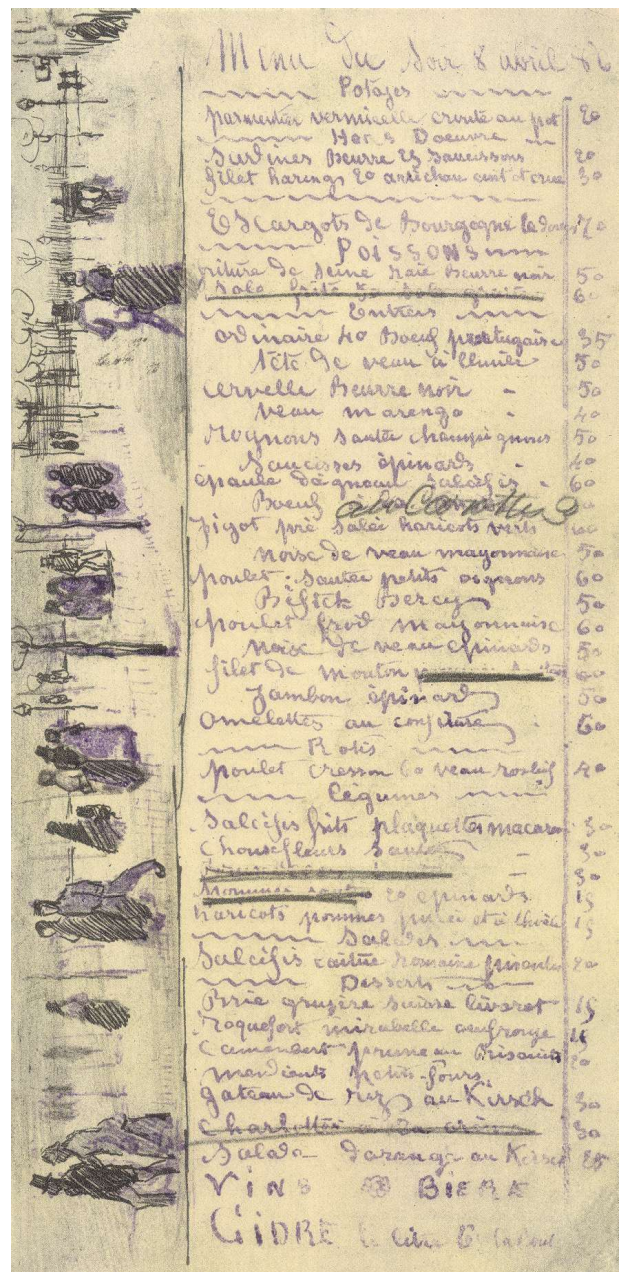 Menu du Soir 8 avril 86
Potages
parmentier vermicelle croute au pot 20
Hors Doeuvre
Sardines Beurre 25 Saucissons 20
filet harengs 20 artichau cuit et crue 30
Escargots de Bourgogne la douz 70
POISSONS
friture de Seine Raie Beurre noir 50
Sole frite 50 Sole 60
Entrées
ordinaire 40 Boeuf portugaise 35
tête de veau à l'huile 50
cervelle Beurre noir - 50
veau marengo - 40
Rognons sautée champignons 50
Saucisses épinards - 40
épaule d'agneau Salsifis - 60
Boeuf aux Carottes
gigot pré Salée haricots verts 60
noise de veau mayonnaise 50
poulet Sautée petits oignons 60
Bifteck Bercy 50
poulet froid mayonnaise 60
noise de veau épinards 50
filet de mouton 60
Jambon épinard 50
Omelettes au confiture - 60
Rotis
poulet cresson 60 veau rosbif 40
légumes
Salcifis frits plaquettes macaro 30
Choux fleurs Sautés - 30
- 30
20 épinards 15
haricots pommes purée et à l'huile 15
Salades
Salcifis laitue romaine pissenlit 20
Desserts
Brie gruyère Suisse livarot 15
Roquefort mirabelle 15
Camembert pruneau Biscuits 20
mendiants petits-fours
gateau de riz au Kirsch 30
Charlotte 30
Salade d'orange au Kirsch 25
VINS BIERE
CIDRE le litre